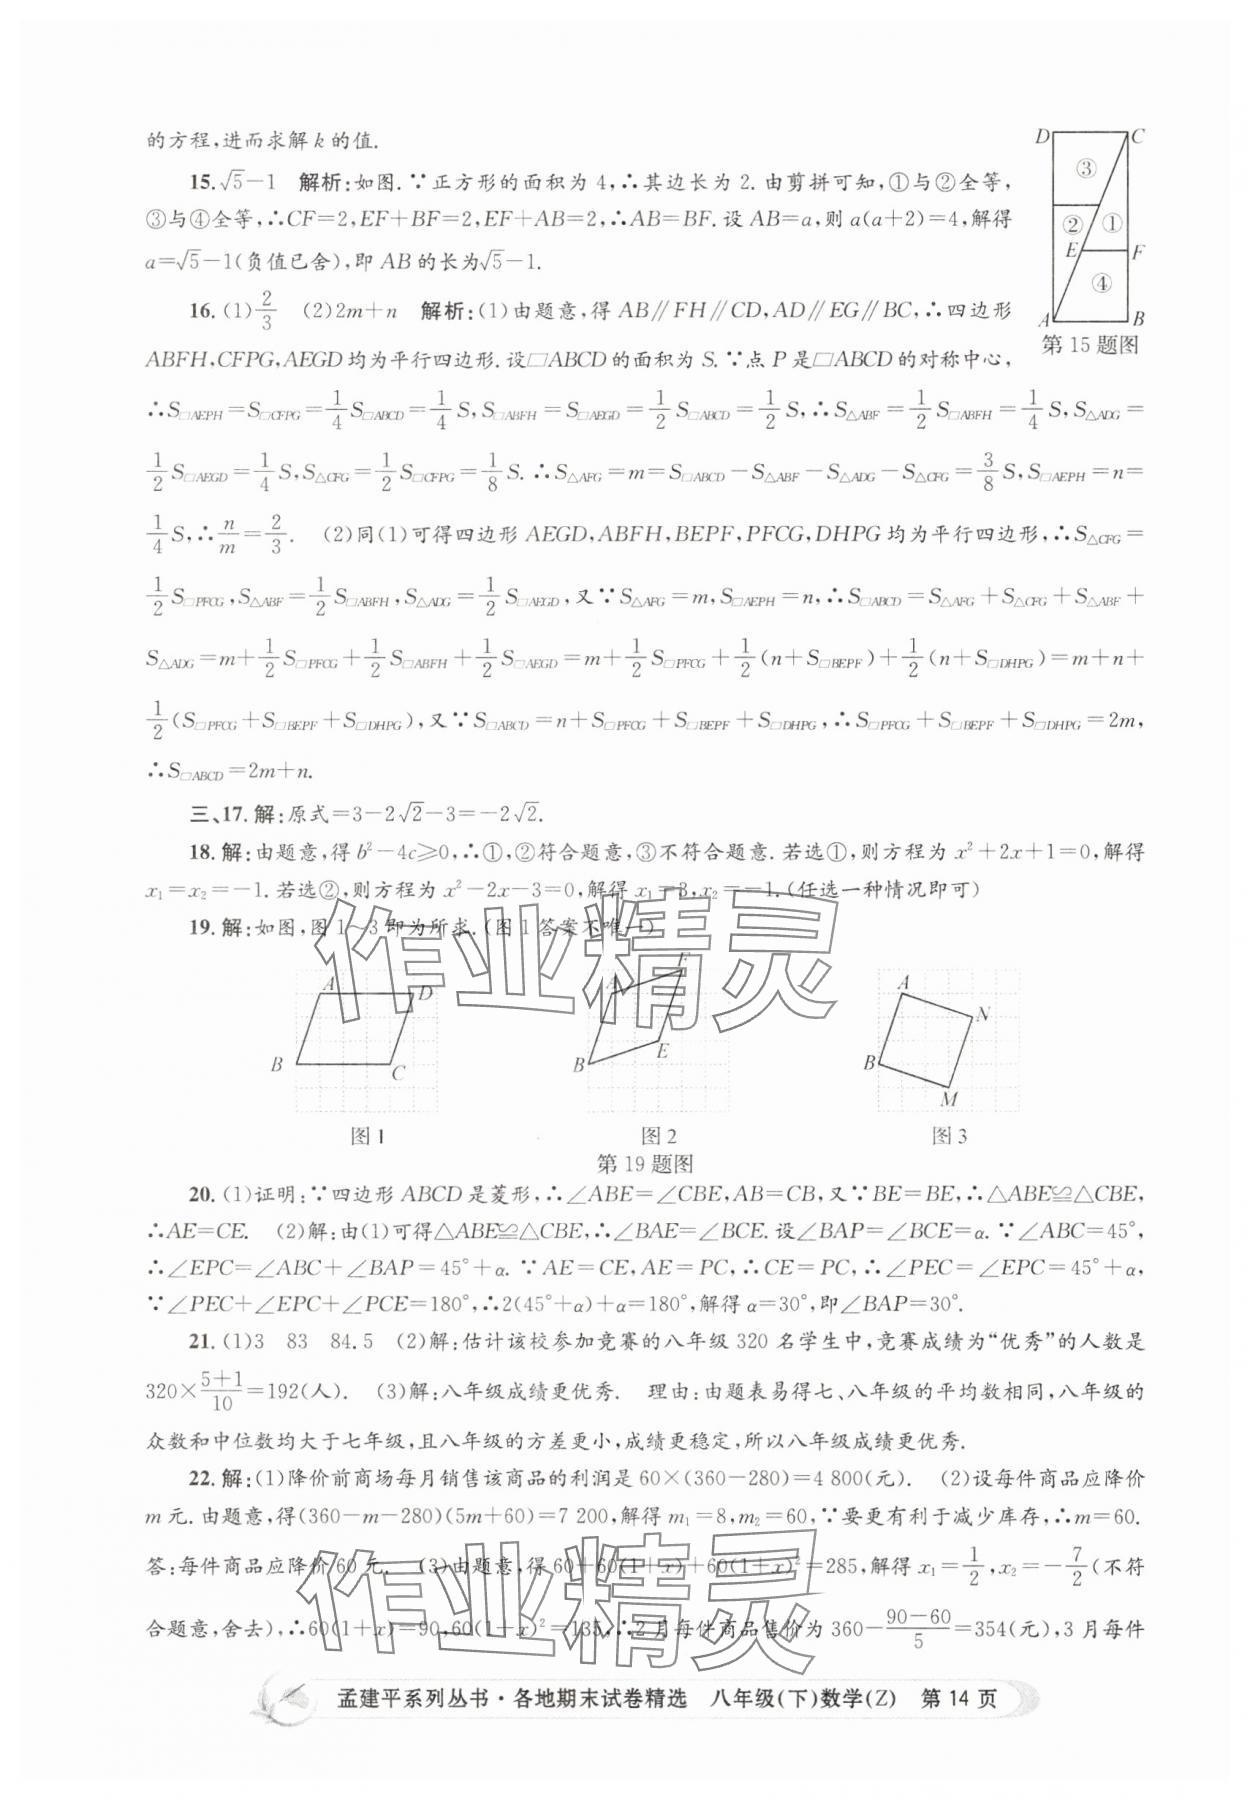 的方程,进而求解k的值.
15.√5-1 解析:如图.∵正方形的面积为4,∴其边长为2.由剪拼可知,①与②全等,
③与④全等,∴CF=2,EF+BF=2,EF+AB=2,∴AB=BF.设AB=a,则a(a+2)=4,解得
a=√5-1(负值已舍),即AB的长为√5-1.
D C ③ ② ① E F ④ A B
第15题图
16.(1)2/3 (2)2m+n 解析:(1)由题意,得AB∥FH∥CD,AD∥EG∥BC,∴四边形
ABFH,CFPG,AEGD均为平行四边形.设□ABCD的面积为S.∵点P是□ABCD的对称中心,
∴S□AEPH=S□CFPG=1/4S□ABCD=1/4S,S□ABFH=S□AEGD=1/2S□ABCD=1/2S,∴S△ABF=1/2S□ABFH=1/4S,S△ADG=
1/2S□AEGD=1/4S,S△CFG=1/2S□CFPG=1/8S.∴S△AFG=m=S□ABCD-S△ABF-S△ADG-S△CFG=3/8S,S□AEPH=n=
1/4S,∴n/m=2/3. (2)同(1)可得四边形AEGD,ABFH,BEPF,PFCG,DHPG均为平行四边形,∴S△CFG=
1/2S□PFCG,S△ABF=1/2S□ABFH,S△ADG=1/2S□AEGD,又∵S△AFG=m,S□AEPH=n,∴S□ABCD=S△AFG+S△CFG+S△ABF+
S△ADG=m+1/2S□PFCG+1/2S□ABFH+1/2S□AEGD=m+1/2S□PFCG+1/2(n+S□BEPF)+1/2(n+S□DHPG)=m+n+
1/2(S□PFCG+S□BEPF+S□DHPG),又∵S□ABCD=n+S□PFCG+S□BEPF+S□DHPG,∴S□PFCG+S□BEPF+S□DHPG=2m,
∴S□ABCD=2m+n.
三、17.解:原式=3-2√2-3=-2√2.
18.解:由题意,得b²-4c≥0,∴①,②符合题意,③不符合题意.若选①,则方程为x²+2x+1=0,解得
x₁=x₂=-1.若选②,则方程为x²-2x-3=0,解得x₁=3,x₂=-1.(任选一种情况即可)
19.解:如图,图1~3即为所求.(图1答案不唯一)
A D B C
A F B E
A N B M
图1 图2 图3
第19题图
20.(1)证明:∵四边形ABCD是菱形,∴∠ABE=∠CBE,AB=CB,又∵BE=BE,∴△ABE≌△CBE,
∴AE=CE. (2)解:由(1)可得△ABE≌△CBE,∴∠BAE=∠BCE.设∠BAP=∠BCE=α.∵∠ABC=45°,
∴∠EPC=∠ABC+∠BAP=45°+α.∵AE=CE,AE=PC,∴CE=PC,∴∠PEC=∠EPC=45°+α,
∵∠PEC+∠EPC+∠PCE=180°,∴2(45°+α)+α=180°,解得α=30°,即∠BAP=30°.
21.(1)3 83 84.5 (2)解:估计该校参加竞赛的八年级320名学生中,竞赛成绩为“优秀”的人数是
320×(5+1)/10=192(人). (3)解:八年级成绩更优秀. 理由:由题表易得七、八年级的平均数相同,八年级的
众数和中位数均大于七年级,且八年级的方差更小,成绩更稳定,所以八年级成绩更优秀.
22.解:(1)降价前商场每月销售该商品的利润是60×(360-280)=4 800(元). (2)设每件商品应降价
m元.由题意,得(360-m-280)(5m+60)=7 200,解得m₁=8,m₂=60,∵要更有利于减少库存,∴m=60.
答:每件商品应降价60元. (3)由题意,得60+60(1+x)+60(1+x)²=285,解得x₁=1/2,x₂=-7/2(不符
合题意,舍去),∴60(1+x)=90,60(1+x)²=135,∴2月每件商品售价为360-(90-60)/5=354(元),3月每件
作业精灵
作业精灵
孟建平系列丛书·各地期末试卷精选 八年级(下)数学(Z) 第14页